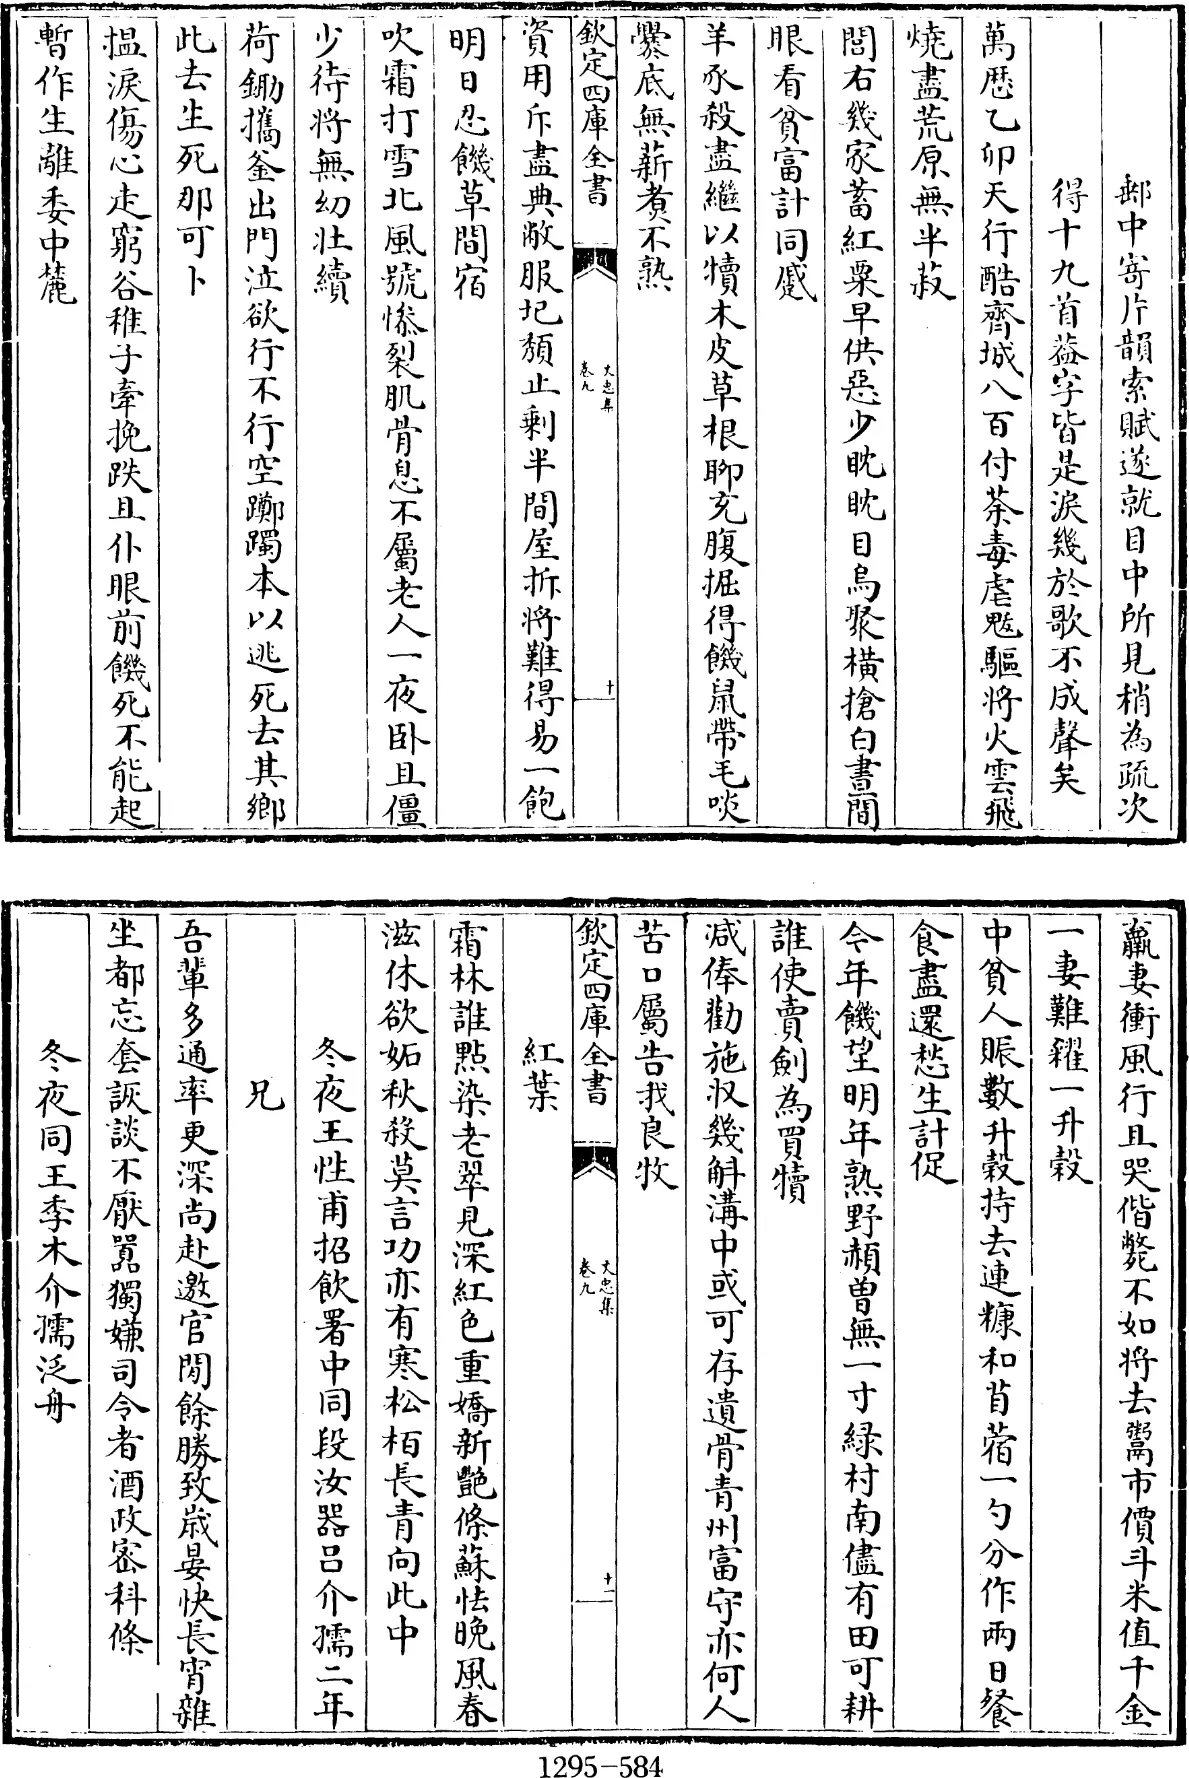 郵中寄片韻索賦遂就目中所見稍為疏次
得十九首葢字皆是淚幾於歌不成聲矣
萬歷乙卯天行酷齊城八百付荼毒虐魃驅將火雲飛
燒盡荒原無半菽
閭右幾家蓄紅粟早供惡少眈眈目烏聚橫搶白晝間
眼看貧富計同蹙
羊豕殺盡繼以犢木皮草根聊充腹掘得饑鼠帶毛啖
爨底無薪煑不熟
欽定四庫全書
文忠集
卷九
十
資用斥盡典敝服圮頽止剩半間屋拆將難得易一飽
明日忍饑草間宿
吹霜打雪北風號慘裂肌骨息不屬老人一夜卧且僵
少待將無幼壯續
荷鋤攜釜出門泣欲行不行空躑躅本以逃死去其鄉
此去生死那可卜
揾淚傷心走窮谷稚子牽挽跌且仆眼前饑死不能起
暫作生離委中麓
羸妻衝風行且哭偕斃不如將去鬻市價斗米值千金
一妻難糴一升穀
中貧人賑數升穀持去連糠和苜蓿一勺分作兩日餐
食盡還愁生計促
今年饑望明年熟野頳曽無一寸緑村南儘有田可耕
誰使賣劍為買犢
減俸勸施收幾斛溝中或可存遺骨青州富守亦何人
苦口屬告我良牧
欽定四庫全書
文忠集
卷九
十一
紅葉
霜林誰點染老翠見深紅色重嬌新艷條蘇怯晚風春
滋休欲妬秋殺莫言功亦有寒松栢長青向此中
冬夜王性甫招飲署中同段汝器呂介孺二年
兄
吾輩多通率更深尚赴邀官閒餘勝致嵗晏快長宵雜
坐都忘套詼談不厭嚚獨嫌司令者酒政宻科條
冬夜同王季木介孺泛舟
1295-584